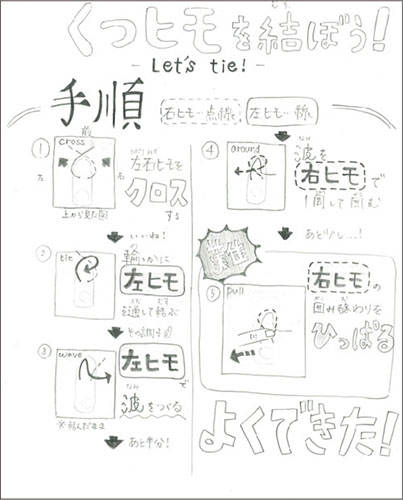 くつヒモを結ぼう!
- Let's tie! -
手順
右ヒモ…点線
左ヒモ…線
①
cross
前
左
右
上から見た図
左右ヒモを
クロス
する
いいね!
②
tie
輪っかに
左ヒモ
を通して結ぶ
その調子!
③
wave
左ヒモで
波をつくる
※結んだまま
あと半分!
④
around
波を
右ヒモで
1周して囲む
あと少し…!
⑤
pull
右ヒモの
囲み終わりを
ひっぱる
よくできた!